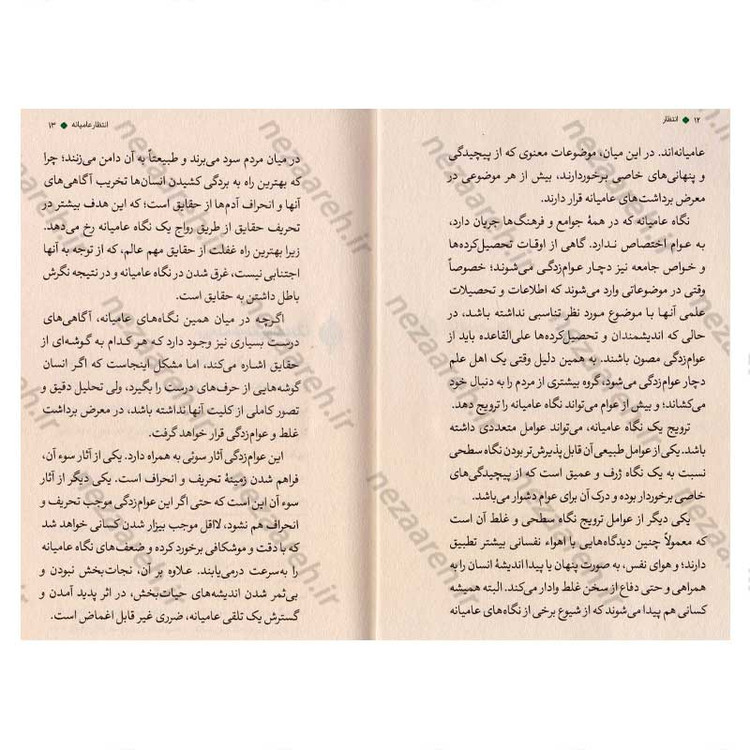 ۱۲ ◆ انتظار
عامیانه‌اند. در این میان، موضوعات معنوی که از پیچیدگی
و پنهانی‌های خاصی برخوردارند، بیش از هر موضوعی در
معرض برداشت‌های عامیانه قرار دارند.
نگاه عامیانه که در همهٔ جوامع و فرهنگ‌ها جریان دارد،
به عوام اختصاص ندارد. گاهی از اوقات تحصیل‌کرده‌ها
و خواص جامعه نیز دچار عوام‌زدگی می‌شوند؛ خصوصاً
وقتی در موضوعاتی وارد می‌شوند که اطلاعات و تحصیلات
علمی آنها با موضوع مورد نظر تناسبی نداشته باشد، در
حالی که اندیشمندان و تحصیل‌کرده‌ها علی‌القاعده باید از
عوام‌زدگی مصون باشند. به همین دلیل وقتی یک اهل علم
دچار عوام‌زدگی می‌شود، گروه بیشتری از مردم را به دنبال خود
می‌کشاند؛ و بیش از عوام می‌تواند نگاه عامیانه را ترویج دهد.
ترویج یک نگاه عامیانه، می‌تواند عوامل متعددی داشته
باشد. یکی از عوامل طبیعی آن قابل پذیرش‌تر بودن نگاه سطحی
نسبت به یک نگاه ژرف و عمیق است که از پیچیدگی‌های
خاصی برخوردار بوده و درک آن برای عوام دشوار می‌باشد.
یکی دیگر از عوامل ترویج نگاه سطحی و غلط آن است
که معمولاً چنین دیدگاه‌هایی با اهواء نفسانی بیشتر تطبیق
دارند؛ و هوای نفس، به صورت پنهان یا پیدا اندیشهٔ انسان را به
همراهی و حتی دفاع از سخن غلط وادار می‌کند. البته همیشه
کسانی هم پیدا می‌شوند که از شیوع برخی از نگاه‌های عامیانه
انتظار عامیانه ◆ ۱۳
در میان مردم سود می‌برند و طبیعتاً به آن دامن می‌زنند؛ چرا
که بهترین راه به بردگی کشیدن انسان‌ها تخریب آگاهی‌های
آنها و انحراف آدم‌ها از حقایق است؛ که این هدف بیشتر در
تحریف حقایق از طریق رواج یک نگاه عامیانه رخ می‌دهد.
زیرا بهترین راه غفلت از حقایق مهم عالم، که از توجه به آنها
اجتنابی نیست، غرق شدن در نگاه عامیانه و در نتیجه نگرش
باطل داشتن به حقایق است.
اگرچه در میان همین نگاه‌های عامیانه، آگاهی‌های
درست بسیاری نیز وجود دارد که هر کدام به گوشه‌ای از
حقایق اشاره می‌کند، اما مشکل اینجاست که اگر انسان
گوشه‌هایی از حرف‌های درست را بگیرد، ولی تحلیل دقیق و
تصور کاملی از کلیت آنها نداشته باشد، در معرض برداشت
غلط و عوام‌زدگی قرار خواهد گرفت.
این عوام‌زدگی آثار سوئی به همراه دارد. یکی از آثار سوء آن،
فراهم شدن زمینهٔ تحریف و انحراف است. یکی دیگر از آثار
سوء آن این است که حتی اگر این عوام‌زدگی موجب تحریف و
انحراف هم نشود، لااقل موجب بیزار شدن کسانی خواهد شد
که با دقت و موشکافی برخورد کرده و ضعف‌های نگاه عامیانه
را به‌سرعت درمی‌یابند. علاوه بر آن، نجات‌بخش نبودن و
بی‌ثمر شدن اندیشه‌های حیات‌بخش، در اثر پدید آمدن و
گسترش یک تلقی عامیانه، ضرری غیر قابل اغماض است.
nezaareh.ir